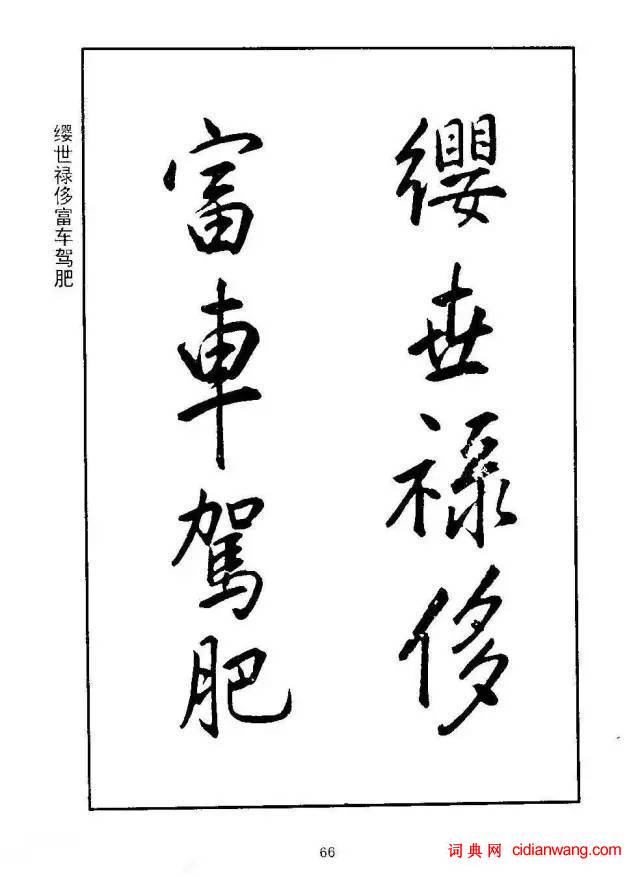 缨世禄侈富车驾肥
纓世禄侈
富車駕肥
66
词典网 cidianwang.com